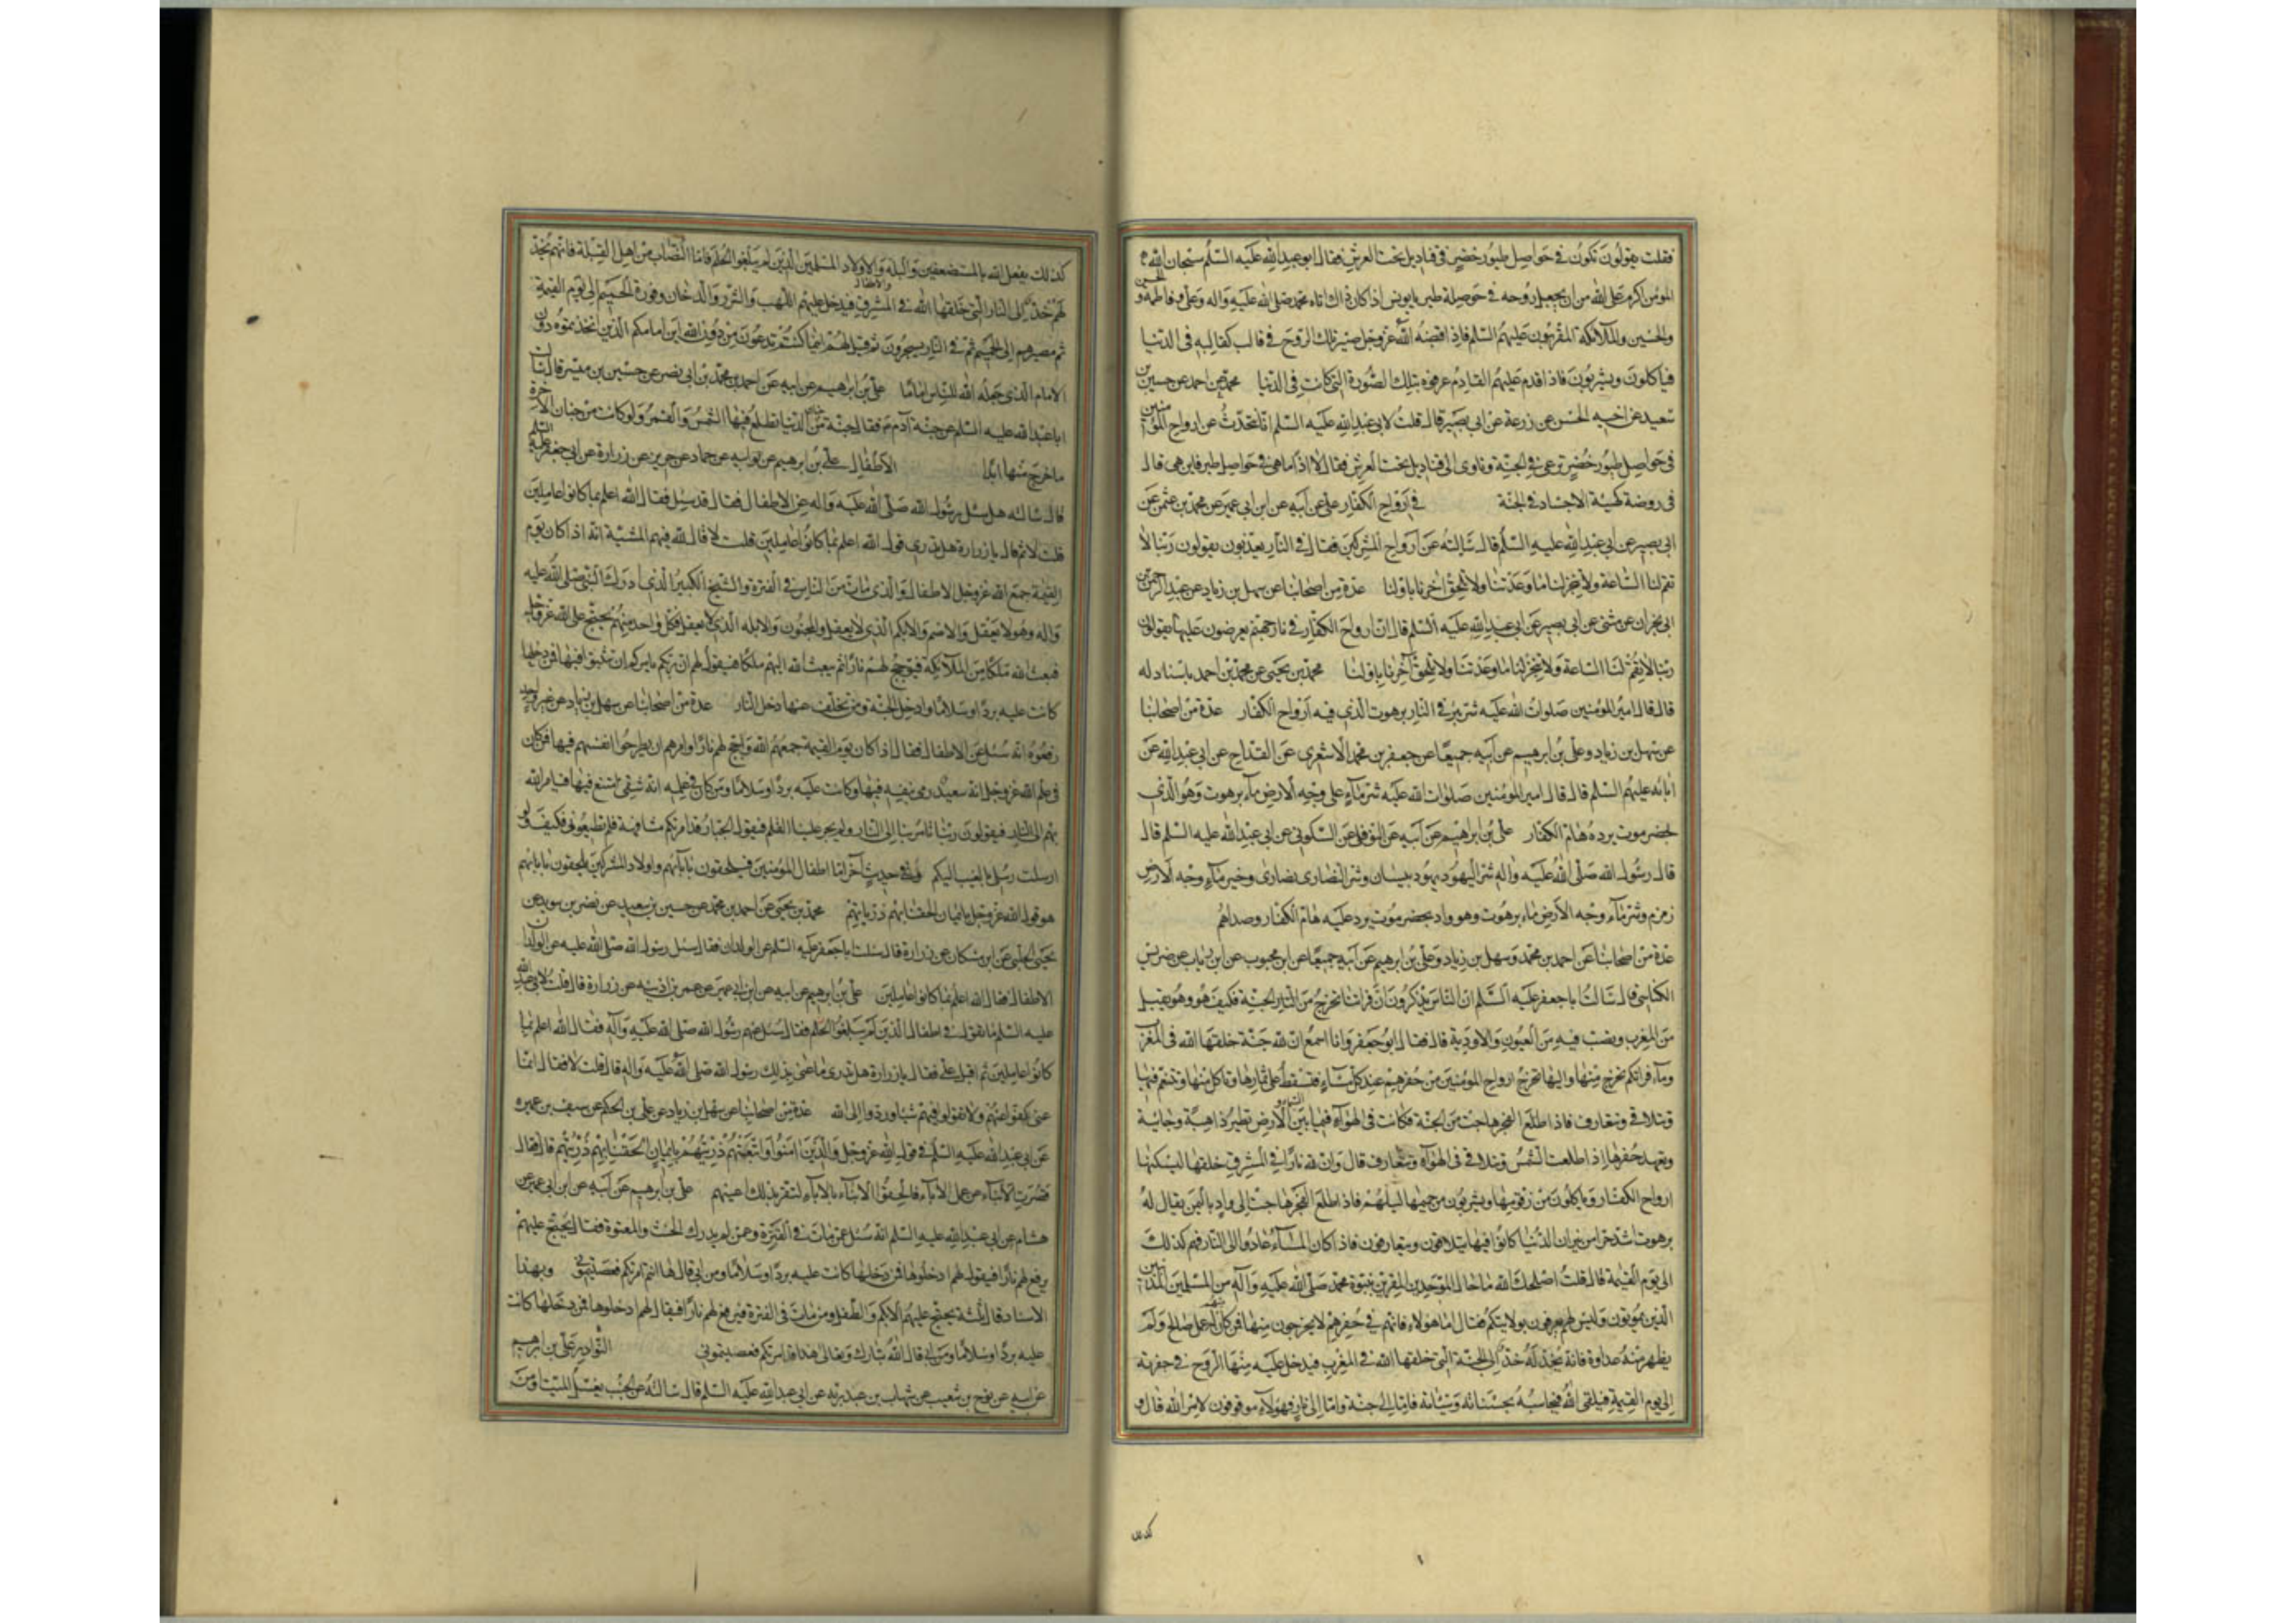 فقلت يقولون تكون في حواصل طيور خضر في قناديل تحت العرش فقال ابو عبد الله عليه السلم سبحان الله
المؤمن اكرم على الله من ان يجعل روحه في حوصلة طير يا يونس اذا كان ذلك اتاه محمد صلى الله عليه واله وعلي وفاطمة والحسن
والحسين والملائكة المقربون عليهم السلم فاذا قبضه الله عز وجل صير تلك الروح في قالب كقالبه في الدنيا
فياكلون ويشربون فاذا قدم عليهم القادم عرفوه بتلك الصورة التي كانت في الدنيا محمد عن احمد عن حسين بن
سعيد عن اخيه الحسن عن زرعة عن ابي بصير قال قلت لابي عبد الله عليه السلم انا نتحدث عن ارواح المؤمنين
في حواصل طيور خضر ترعى في الجنة وتاوى الى قناديل تحت العرش فقال لا اذا ما هي في حواصل طير فاين هي قال
في روضة كهيئة الاجساد في الجنة في ارواح الكفار علي عن ابيه عن ابن ابي عمير عن محمد بن عثمن عن
ابي بصير عن ابي عبد الله عليه السلم قال سالته عن ارواح المشركين فقال في النار يعذبون يقولون ربنا لا
تقم لنا الساعة ولا تنجز لنا ما وعدتنا ولا تلحق اخرنا باولنا عدة من اصحابنا عن سهل بن زياد عن عبد الرحمن بن
ابي نجران عن مثنى عن ابي بصير عن ابي عبد الله عليه السلم قال ان ارواح الكفار في نار جهنم يعرضون عليها يقولون
ربنا لا تقم لنا الساعة ولا تنجز لنا ما وعدتنا ولا تلحق آخرنا باولنا محمد بن يحيى عن محمد بن احمد باسناد له
قال قال امير المؤمنين صلوات الله عليه شر بئر في النار برهوت الذي فيه ارواح الكفار عدة من اصحابنا
عن سهل بن زياد وعلي بن ابرهيم عن ابيه جميعا عن جعفر بن محمد الاشعري عن القداح عن ابي عبد الله عن
آبائه عليهم السلم قال قال امير المؤمنين صلوات الله عليه شر ماء على وجه الارض ماء برهوت وهو الذي
بحضرموت يرده هام الكفار علي بن ابرهيم عن ابيه عن النوفلي عن السكوني عن ابي عبد الله عليه السلم قال
قال رسول الله صلى الله عليه واله شر اليهود يهود بيسان وشر النصارى نصارى وخير ماء وجه الارض
زمزم وشر ماء وجه الارض ماء برهوت وهو واد بحضرموت يرد عليه هام الكفار وصداهم
عدة من اصحابنا عن احمد بن محمد وسهل بن زياد وعلي بن ابرهيم عن ابيه جميعا عن ابن محبوب عن ابن رياب عن ضريس
الكناسي قال سالت ابا جعفر عليه السلم ان الناس يذكرون ان فراتنا تخرج من الجنة فكيف هو وهو يقبل
من المغرب ويصب فيه من العيون والاودية قال فقال ابو جعفر وانا اسمع ان لله جنة خلقها الله في المغرب
وماء فراتكم يخرج منها واليها تخرج ارواح المؤمنين من حفرهم عند كل مساء فتسقط على ثمارها وتاكل منها وتتنعم فيها
وتتلاقى وتتعارف فاذا طلع الفجر هاجت من الجنة فكانت في الهواء فيما بين السماء والارض تطير ذاهبة وجائية
وتعهد حفرها اذا طلعت الشمس وتتلاقى في الهواء وتتعارف قال وان لله نارا في المشرق خلقها ليسكنها
ارواح الكفار وياكلون من زقومها ويشربون من حميمها ليلهم فاذا طلع الفجر هاجت الى واد باليمن يقال له
برهوت اشد حرا من نيران الدنيا كانوا فيها يتلاقون ويتعارفون فاذا كان المساء عادوا الى النار فهم كذلك
الى يوم القيمة قال قلت اصلحك الله ما حال الموحدين المقرين بنبوة محمد صلى الله عليه وآله من المسلمين المذنبين
الذين يموتون وليس لهم يعرفون بولايتكم فقال اما هؤلاء فانهم في حفرهم لا يخرجون منها فمن كان منهم له عمل صالح ولم
يظهر منه عداوة فانه يخد له خد الى الجنة التي خلقها الله في المغرب فيدخل عليه منها الروح في حفرته
الى يوم القيمة فيلقى الله فيحاسبه بحسناته وسيئاته فاما الى جنة واما الى نار فهؤلاء موقوفون لامر الله قال و
كذلك
كذلك يفعل الله بالمستضعفين والبله والاطفال والاولاد المسلمين الذين لم يبلغوا الحلم فاما النصاب من اهل القبلة فانهم يخد
لهم خد الى النار التي خلقها الله في المشرق فيدخل عليهم اللهب والشرر والدخان وفورة الحميم الى يوم القيمة
ثم مصيرهم الى الحميم ثم في النار يسجرون ثم قيل لهم اينما كنتم تدعون من دون الله اين امامكم الذي اتخذتموه دون
الامام الذي جعله الله للناس اماما علي بن ابرهيم عن ابيه عن احمد بن محمد بن ابي نصر عن حسين بن ميسر قال سالت
ابا عبد الله عليه السلم عن جنة آدم فقال جنة من جنان الدنيا تطلع فيها الشمس والقمر ولو كانت من جنان الآخرة
ما خرج منها ابدا الاطفال علي بن ابرهيم عن ابيه عن حماد عن حريز عن زرارة عن ابي جعفر عليه السلم
قال سالته هل سئل رسول الله صلى الله عليه واله عن الاطفال فقال قد سئل فقال الله اعلم بما كانوا عاملين
قلت لا ثم قال يا زرارة هل تدري قوله الله اعلم بما كانوا عاملين قلت لا قال لله فيهم المشية انه اذا كان يوم
القيمة جمع الله عز وجل الاطفال والذي مات من الناس في الفترة والشيخ الكبير الذي ادرك النبي صلى الله عليه
واله وهو لا يعقل والاصم والابكم الذي لا يعقل والمجنون والابله الذي لا يعقل فكل واحد منهم يحتج على الله عز وجل
فبعث الله ملكا من الملائكة فيؤجج لهم نارا ثم يبعث الله اليهم ملكا فيقول لهم ان ربكم يامركم ان تثبوا فيها فمن دخلها
كانت عليه بردا وسلاما وادخل الجنة ومن تخلف عنها دخل النار عدة من اصحابنا عن سهل بن زياد عن غير واحد
رفعوه انه سئل عن الاطفال فقال اذا كان يوم القيمة جمعهم الله واجج لهم نارا وامرهم ان يطرحوا انفسهم فيها فمن كان
في علم الله عز وجل انه سعيد رمى بنفسه فيها وكانت عليه بردا وسلاما ومن كان في علمه انه شقي امتنع فيها فيامر الله
بهم الى النار فيقولون ربنا تامر بنا الى النار ولم يجر علينا القلم فيقول الجبار قد امرتكم مشافهة فلم تطيعوني فكيف ولو
ارسلت رسلي بالغيب اليكم وفي حديث آخر اما اطفال المؤمنين فيلحقون بآبائهم واولاد المشركين يلحقون بابائهم
هو قول الله عز وجل بايمان الحقنا بهم ذرياتهم محمد بن يحيى عن احمد بن محمد عن حسين بن سعيد عن نضر بن سويد عن
يحيى الحلبي عن ابن مسكان عن زرارة قال سالت ابا جعفر عليه السلم عن الولدان فقال سئل رسول الله صلى الله عليه عن الولدان
الاطفال فقال الله اعلم بما كانوا عاملين علي بن ابرهيم عن ابيه عن ابن ابي عمير عن عمر بن اذينه عن زرارة قال قلت لابي عبد الله
عليه السلم ما تقول في اطفال الذين لم يبلغوا الحلم فقال سئل عنهم رسول الله صلى الله عليه وآله فقال الله اعلم بما
كانوا عاملين ثم اقبل علي فقال يا زرارة هل تدري ما عنى بذلك رسول الله صلى الله عليه واله قال قلت لا فقال انما
عنى كفوا عنهم ولا تقولوا فيهم شيئا وردوا الى الله عدة من اصحابنا عن سهل بن زياد عن علي بن الحكم عن سيف بن عميره
عن ابي عبد الله عليه السلم في قول الله عز وجل والذين آمنوا واتبعتهم ذريتهم بايمان الحقنا بهم ذريتهم قال فقال
قصرت الابناء عن عمل الاباء فالحقوا الابناء بالاباء لتقر بذلك اعينهم علي بن ابرهيم عن ابيه عن ابن ابي عمير عن
هشام عن ابي عبد الله عليه السلم انه سئل عمن مات في الفترة وعمن لم يدرك الحنث والمعتوه فقال يحتج عليهم
يرفع لهم نارا فيقول لهم ادخلوها فمن دخلها كانت عليه بردا وسلاما ومن ابى قال ها انتم امرتكم فعصيتموني وبهذا
الاسناد قال ثلثة يحتج عليهم الابكم والطفل ومن مات في الفترة فيرفع لهم نارا فيقال لهم ادخلوها فمن دخلها كانت
عليه بردا وسلاما ومن ابى قال الله تبارك وتعالى هذا قد امرتكم فعصيتموني النوادر علي بن ابرهيم
عن ابيه عن نوح بن شعيب عن شهاب بن عبد ربه عن ابي عبد الله عليه السلم قال سالته عن الجنب يغسل الميت او من